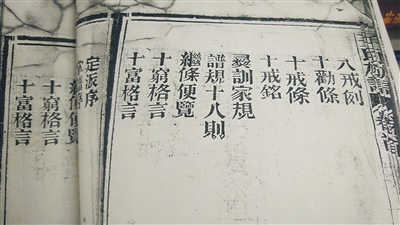 卷首
八戒
十勸條
十戒條
十戒銘
訓家規
譜規十八則
繼條便覽
十窮格言
十富格言
定派序
條便覽
十窮格言
十富格言